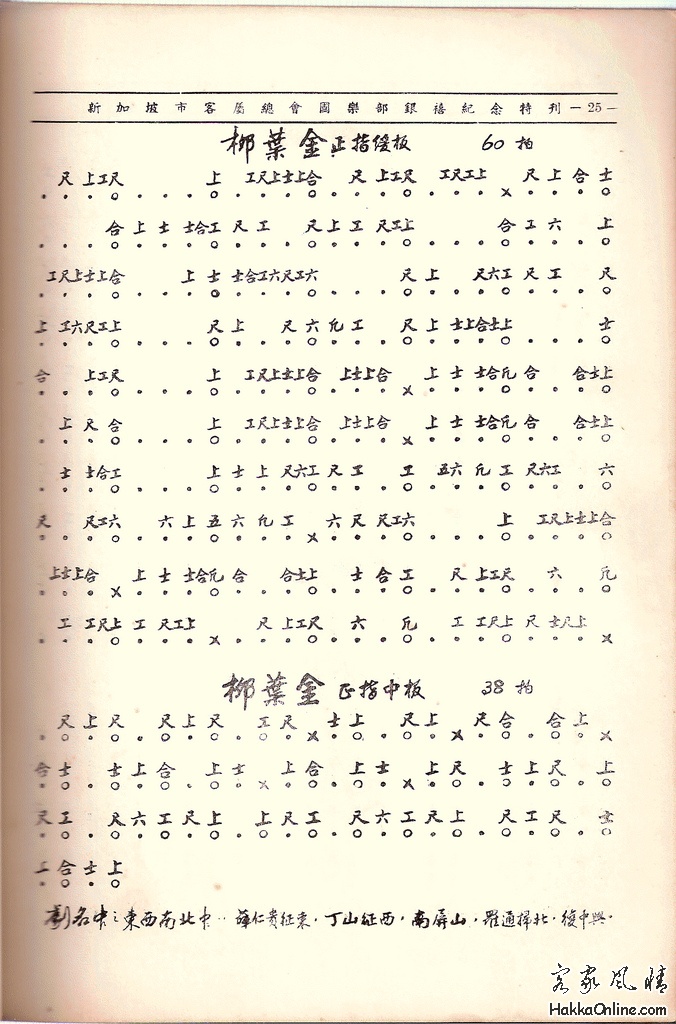 新加坡市客屬總會國樂部銀禧紀念特刊 —25—
柳葉金 正指緩板 60拍
尺 上工尺 上 工尺上士上合 尺 上工尺 工尺工上 尺 上 合 士
合 上 士 士合工 尺 工 尺 上 工 尺工上 合 工 六 上
工尺上士上合 上 士 士合工六尺工六 尺 上 尺六工 尺 工 尺
上 工六尺工上 尺 上 尺 六 凡 工 尺 上 士上合士上 士
合 上工尺 上 工尺上士上合 上士上合 上 士 士合凡 合 合士上
上 尺 合 上 工尺上士上合 上士上合 上 士 士合凡 合 合士上
士 士合工 上 士 上 尺六工 尺 工 工 五六 凡 工 尺六工 六
尺 尺工六 六 上 五 六 凡 工 六 尺 尺工六 上 工尺上士上合
上士上合 上 士 士合凡 合 合士上 士 合 工 尺 上工尺 六 凡
工 工尺上 工 尺工上 尺 上工尺 六 凡 工 工尺上 尺 士尺上
柳葉金 正指中板 38拍
尺 上 尺 尺 上 尺 工 尺 士 上 尺 上 尺 合 合 上
合 士 士 上 合 上 士 上 合 上 士 上 尺 士 上 尺 上
尺 工 尺 六 工 尺 上 上 尺 工 尺 工 六 尺 上 尺 工 尺
工 合 士 上
劇名中:東西南北中··薛仁貴征東·丁山征西·南屏山·羅通掃北·復中興·
客家风情
HakkaOnline.com